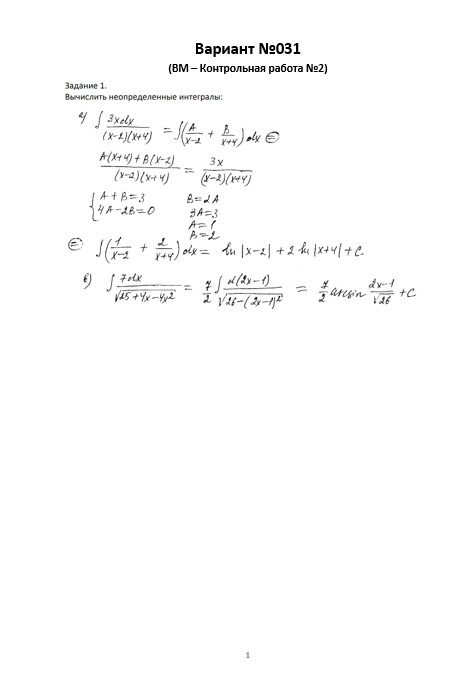 Вариант №031
(ВМ – Контрольная работа №2)
Задание 1.
Вычислить неопределенные интегралы:
а) ∫ 3xdx/((x-2)(x+4)) = ∫(A/(x-2) + B/(x+4)) dx ⊜
(A(x+4)+B(x-2))/((x-2)(x+4)) = 3x/((x-2)(x+4))
{ A+B=3 B=2A
4A-2B=0 3A=3
A=1
B=2
⊜ ∫(1/(x-2) + 2/(x+4)) dx = ln |x-2| + 2 ln |x+4| + C.
в) ∫ 7dx/√(25+4x-4x²) = 7/2 ∫ d(2x-1)/√(26-(2x-1)²) = 7/2 arcsin (2x-1)/√26 + C
1